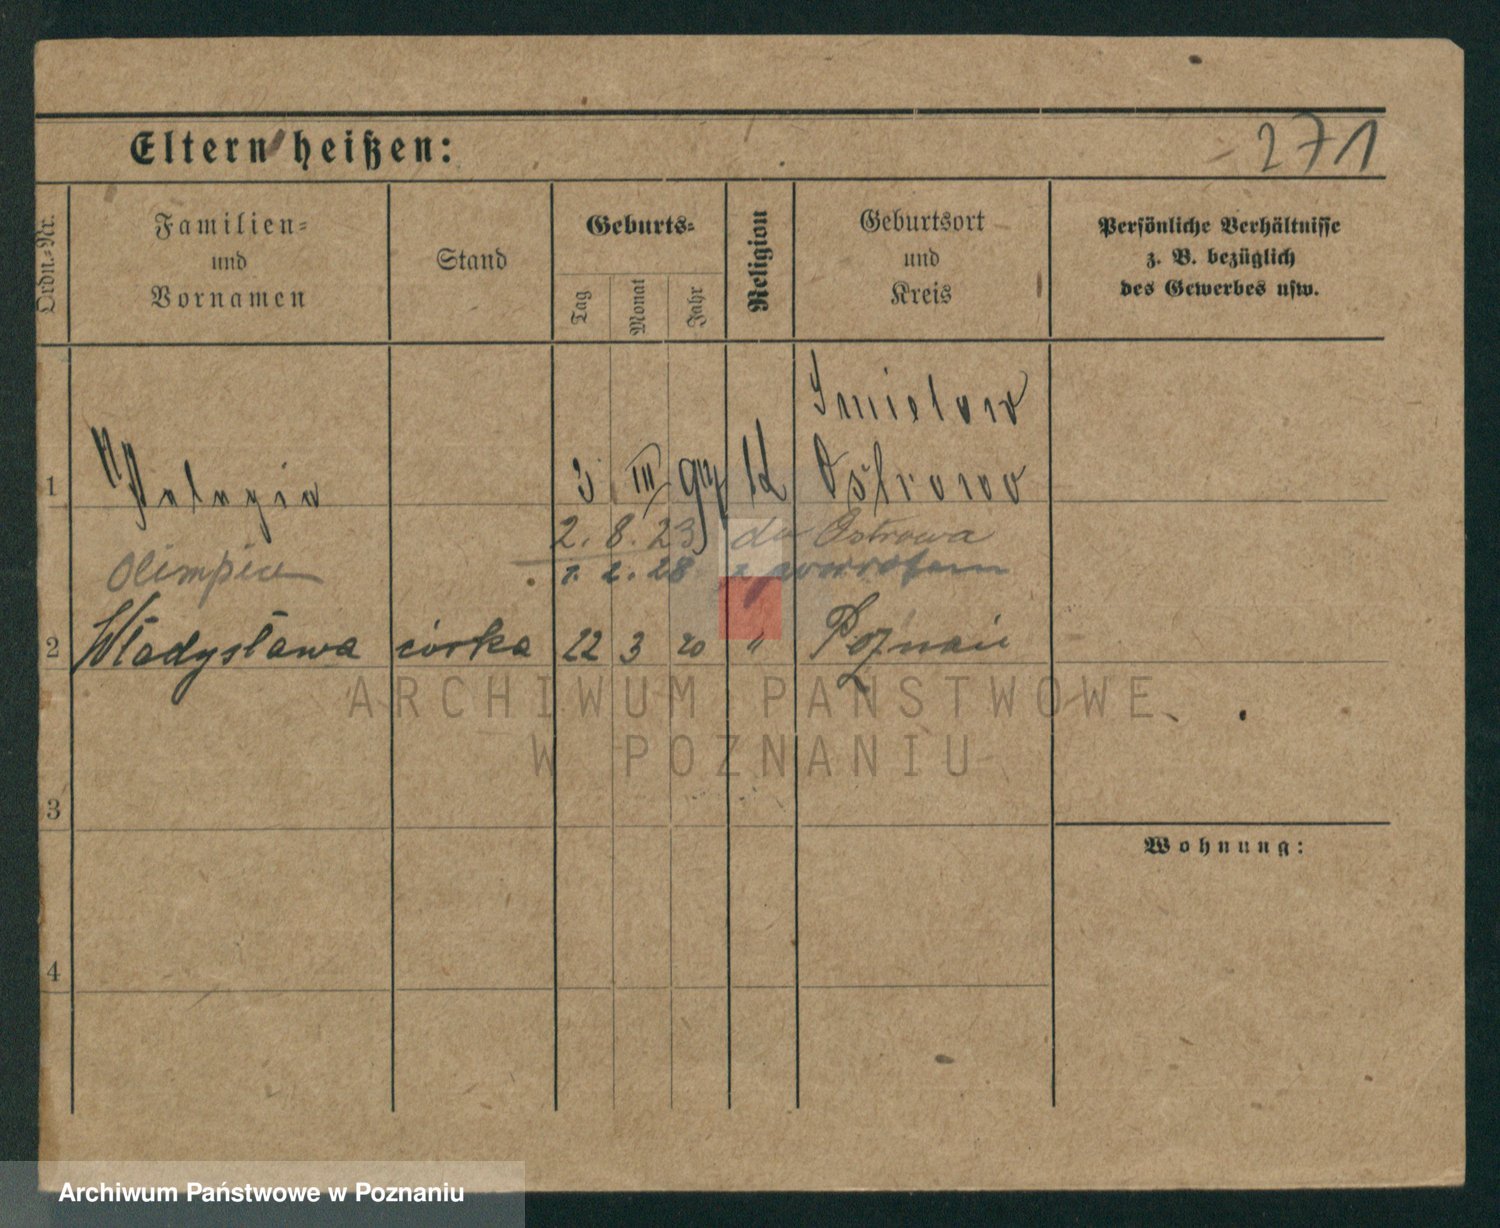 Eltern heißen:
271
Ordn.-Nr.
Familien-
und
Vornamen
Stand
Geburts-
Tag
Monat
Jahr
Religion
Geburtsort
und
Kreis
Persönliche Verhältnisse
z. B. bezüglich
des Gewerbes usw.
1 Pelagia 3 III K Ostrowo
2. 8. 23 do Ostrowa
Olimpia 1. 2. 28 z powrotem
2 Władysława córka 22 3 20 " Poznań
ARCHIWUM PAŃSTWOWE
W POZNANIU
3
Wohnung:
4
Archiwum Państwowe w Poznaniu